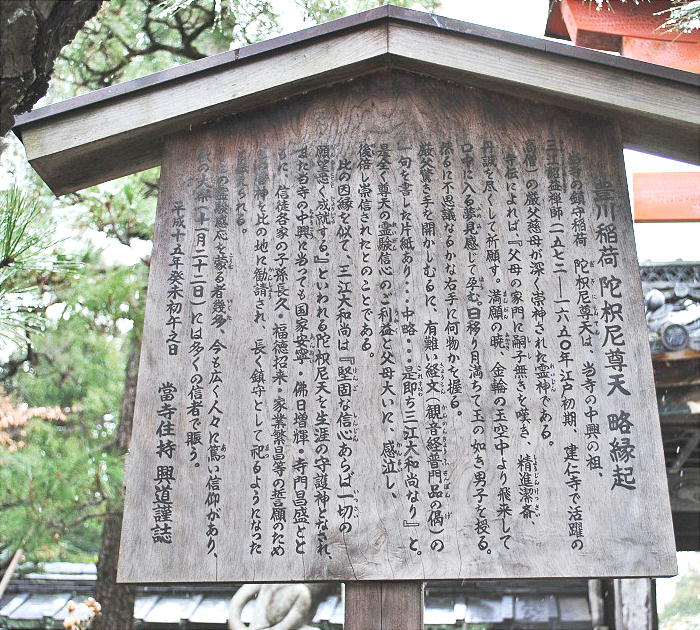 豊川稲荷 陀枳尼尊天 略縁起
当寺の鎮守稲荷 陀枳尼尊天は、当寺の中興の祖、
三江紹益禅師(一五七二―一六五〇年江戸初期 建仁寺で活躍の
高僧)の厳父慈母が深く崇神された霊神である。
寺伝によれば、『父母の家門に嗣子無きを嘆き、精進潔斎、
丹誠を尽して祈願す。満願の暁、金輪の玉空中より飛来して
口中に入る夢見感じて孕む。日移り月満ちて玉の如き男子を授る。
然るに不思議なるかな右手に何物かを握る。
厳父驚き手を開かしむるに、有難い経文(観音経普門品の偈)の
一句を書した片紙あり・・中略・・・是即ち三江大和尚なり』と。
是全く尊天の霊験信心のご利益と父母大いに、感泣し、
倍崇信されたとのことである。
此の因縁を似て、三江大和尚は『堅固な信心あらば一切の
願望悉く成就する』といわれる陀枳尼天を生涯の守護神となされ、
また当寺の中興に当っても国家安寧・佛日増輝・寺門昌盛とと
もに、信徒各家の子孫長久・福徳招来・家業繁昌等の誓願のため
神を此の地に勧請され、長く鎮守として祀るようになった
られる。
の霊験感応を蒙る者幾多、今も広く人々に篤い信仰があり、
の大祭(十一月二十二日)には多くの信者で賑う。
平成十五年癸未初午之日 當寺住持 興道謹誌